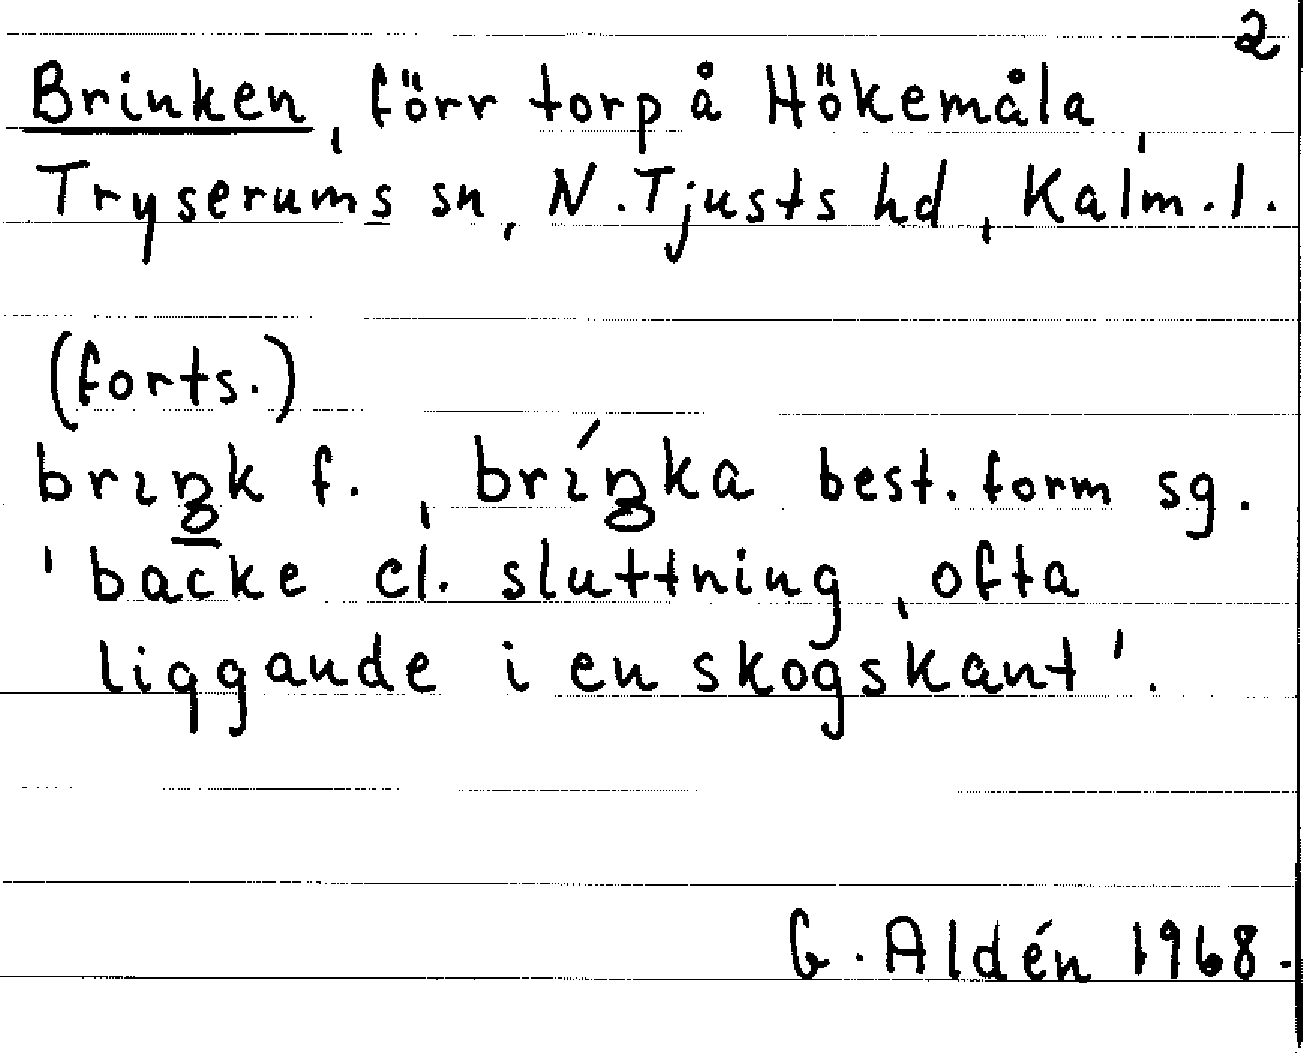 2
Brinken, förr torp å Hökemåla,
Tryserums sn, N. Tjusts hd, Kalm. l.
(forts.)
brıŋk f., bríŋka best. form sg.
'backe el. sluttning, ofta
liggande i en skogskant'.
G. Aldén 1968.